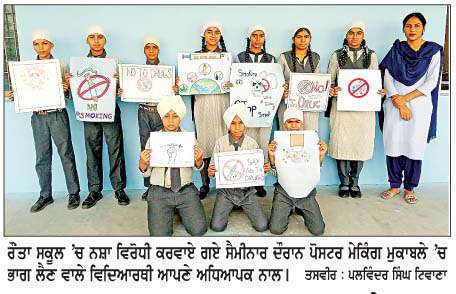 NO SMOKING
NO TO DRUGS
SMOKING
STOP
NO!
DRUGS
SAY
NO TO
DRUGS
ਰੌਂਤਾ ਸਕੂਲ 'ਚ ਨਸ਼ਾ ਵਿਰੋਧੀ ਕਰਵਾਏ ਗਏ ਸੈਮੀਨਾਰ ਦੌਰਾਨ ਪੋਸਟਰ ਮੇਕਿੰਗ ਮੁਕਾਬਲੇ 'ਚ
ਭਾਗ ਲੈਣ ਵਾਲੇ ਵਿਦਿਆਰਥੀ ਆਪਣੇ ਅਧਿਆਪਕ ਨਾਲ। ਤਸਵੀਰ : ਪਲਵਿੰਦਰ ਸਿੰਘ ਟਿਵਾਣਾ